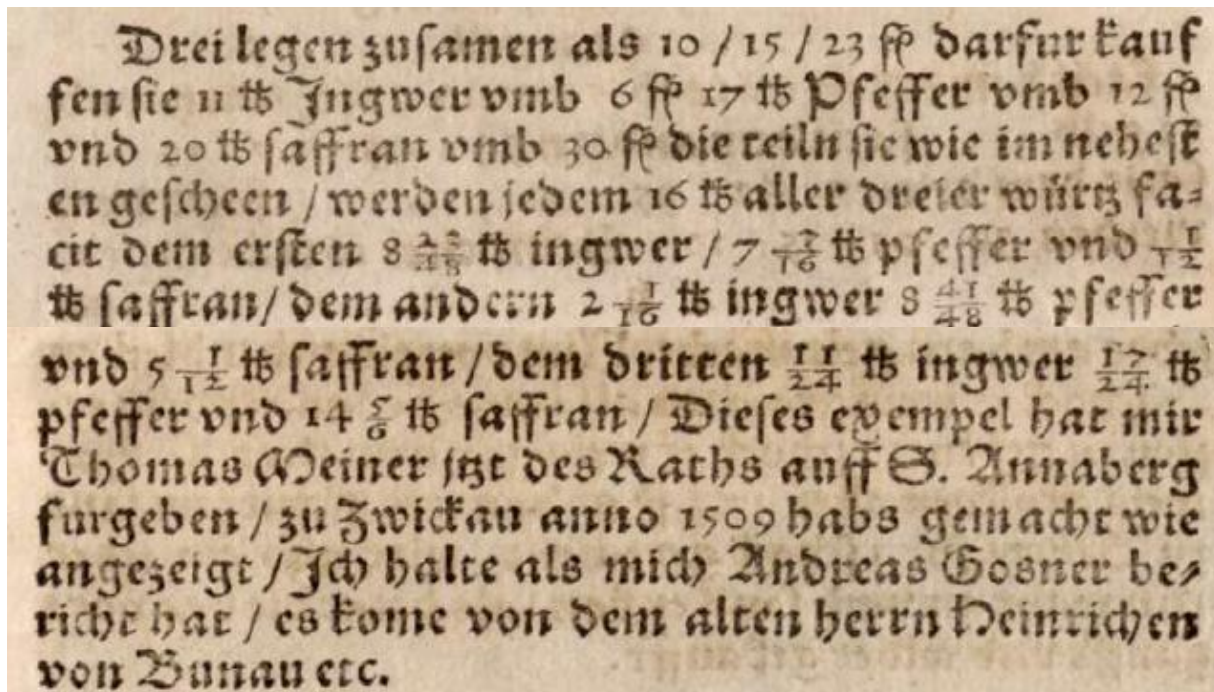 Drei legen zuſamen als 10 / 15 / 23 fl darfur kauf
fen ſie 11 ℔ Ingwer vmb 6 fl 17 ℔ Pfeffer vmb 12 fl
vnd 20 ℔ ſaffran vmb 30 fl die teiln ſie wie im neheſt
en geſcheen / werden jedem 16 ℔ aller dreier würtz fa⸗
cit dem erſten 8 23/48 ℔ ingwer / 7 7/16 ℔ pfeffer vnd 1/12
℔ ſaffran / dem andern 2 1/16 ℔ ingwer 8 41/48 ℔ pfeffer
vnd 5 1/12 ℔ ſaffran / dem dritten 11/24 ℔ ingwer 17/24 ℔
pfeffer vnd 14 5/6 ℔ ſaffran / Dieſes exempel hat mir
Thomas Meiner jtzt des Raths auff S. Annaberg
furgeben / zu Zwickau anno 1509 habs gemacht wie
angezeigt / Ich halte als mich Andreas Gosner be⸗
richt hat / es kome von dem alten herrn Heinrichen
von Bunau etc.